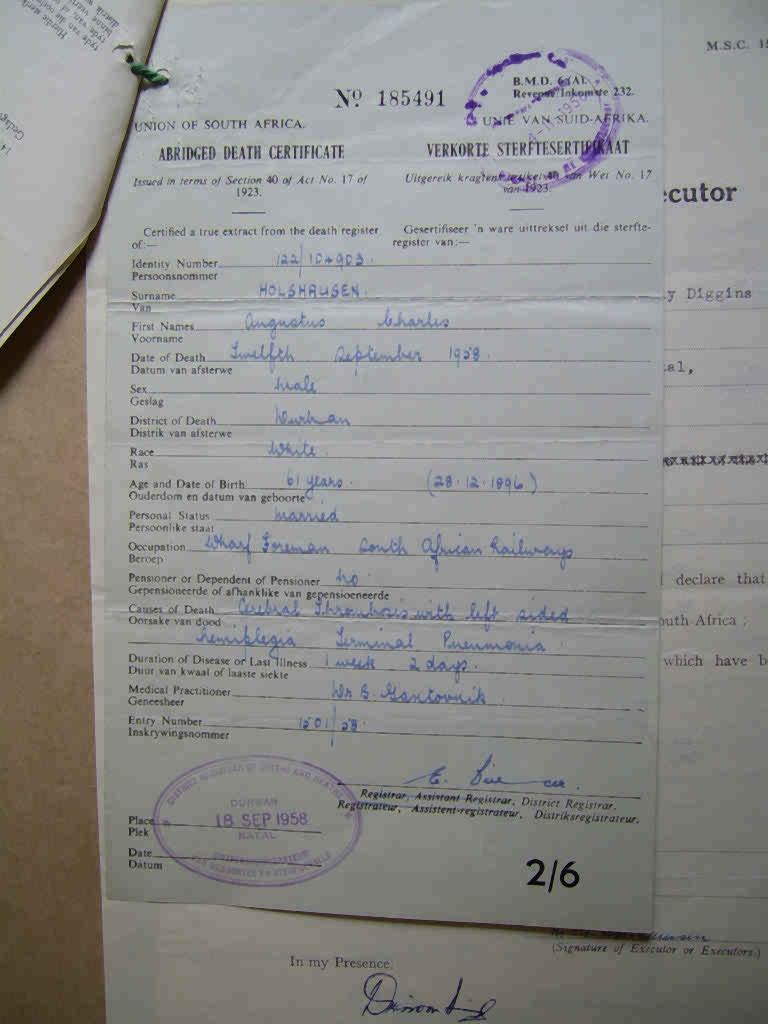 M.S.C. 15
Nº 185491
B.M.D. 6(A).
Revenue/Inkomste 232.
UNION OF SOUTH AFRICA.
UNIE VAN SUID-AFRIKA.
ABRIDGED DEATH CERTIFICATE
VERKORTE STERFTESERTIFIKAAT
Issued in terms of Section 40 of Act No. 17 of
1923.
Uitgereik kragtens artikel 40 van Wet No. 17
van 1923.
ecutor
Certified a true extract from the death register
of:—
Gesertifiseer 'n ware uittreksel uit die sterfte-
register van:—
Identity Number 122/104903.
Persoonsnommer
Surname HOLSHAUSEN.
Van
y Diggins
First Names Augustus Charles
Voorname
Date of Death Twelfth September 1958.
Datum van afsterwe
al,
Sex Male
Geslag
District of Death Durban
Distrik van afsterwe
Race White.
Ras
Age and Date of Birth 61 years. (28.12.1896)
Ouderdom en datum van geboorte
Personal Status Married
Persoonlike staat
Occupation Wharf Foreman South African Railways
Beroep
Pensioner or Dependent of Pensioner No.
Gepensioneerde of afhanklike van gepensioeneerde
declare that
Causes of Death Cerebral Thrombosis with left sided
Oorsake van dood
hemiplegia Terminal Pneumonia.
outh Africa ;
Duration of Disease or Last Illness 1 week 2 days.
Duur van kwaal of laaste siekte
which have b
Medical Practitioner Dr S. Gantovnik.
Geneesheer
Entry Number 1501/58.
Inskrywingsnommer
Registrar, Assistant Registrar, District Registrar.
Registrateur, Assistent-registrateur, Distriksregistrateur.
DISTRICT REGISTRAR OF BIRTHS AND DEATHS
DURBAN
18 SEP 1958
NATAL
Place
Plek
Date
Datum
2/6
(Signature of Executor or Executors.)
In my Presence: